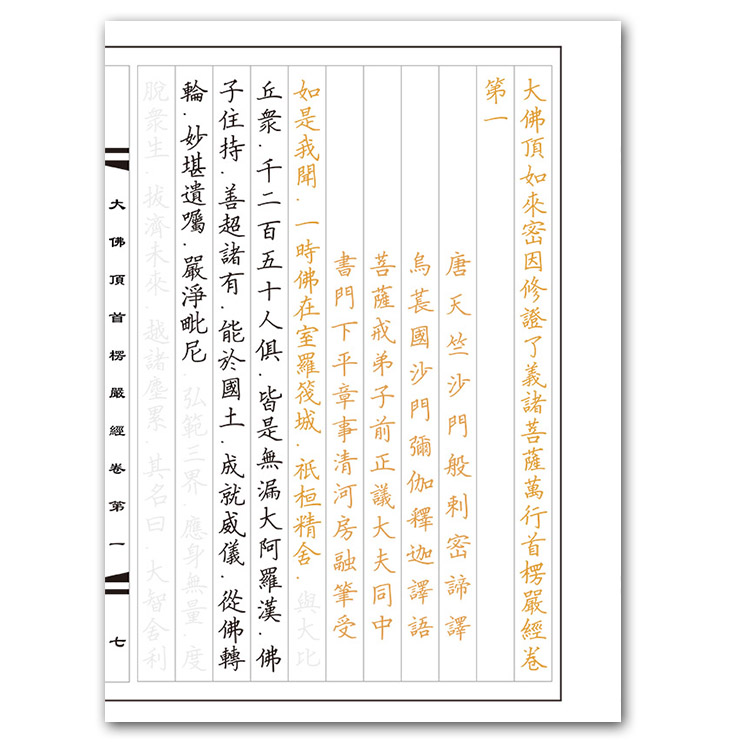 大佛頂如來密因修證了義諸菩薩萬行首楞嚴經卷
第一
唐天竺沙門般剌密諦譯
烏萇國沙門彌伽釋迦譯語
菩薩戒弟子前正議大夫同中
書門下平章事清河房融筆受
如是我聞．一時佛在室羅筏城．祇桓精舍．與大比
丘衆．千二百五十人俱．皆是無漏大阿羅漢．佛
子住持．善超諸有．能於國土．成就威儀．從佛轉
輪．妙堪遺囑．嚴淨毗尼．弘範三界．應身無量．度
脫衆生．拔濟未來．越諸塵累．其名曰．大智舍利
大佛頂首楞嚴經卷第一
七